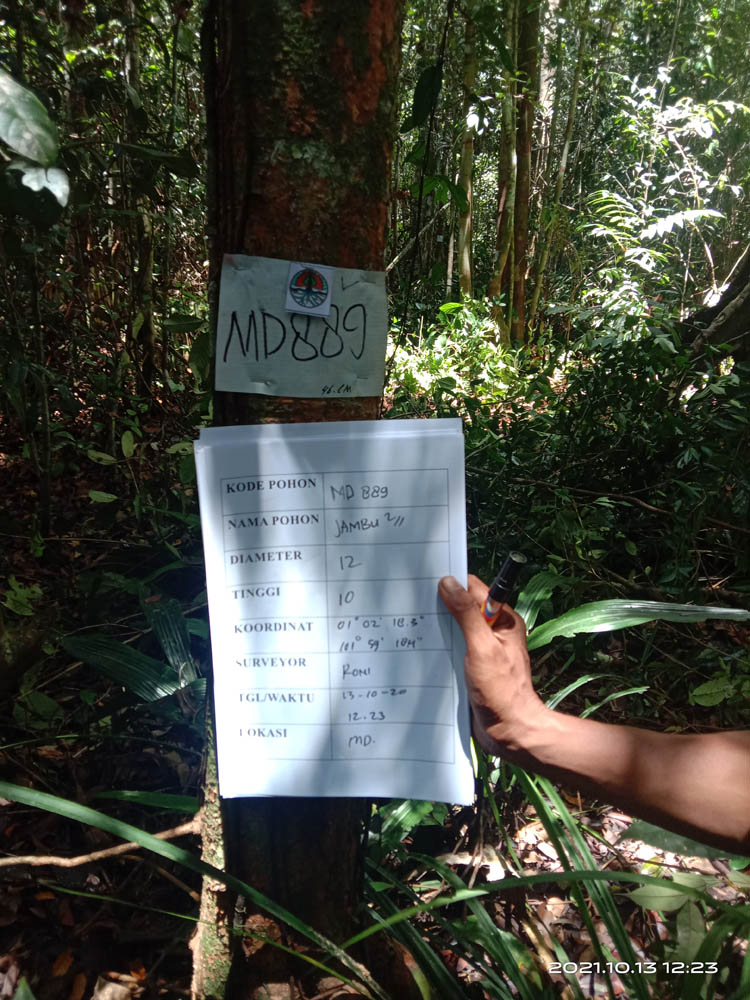 MD889
46.CM
KODE POHON MD 889
NAMA POHON JAMBU ²//
DIAMETER 12
TINGGI 10
KOORDINAT 01° 02' 18.3"
101° 59' 18.4"
SURVEYOR RONI
TGL/WAKTU 13-10-20
12.23
LOKASI MD.
2021.10.13 12:23